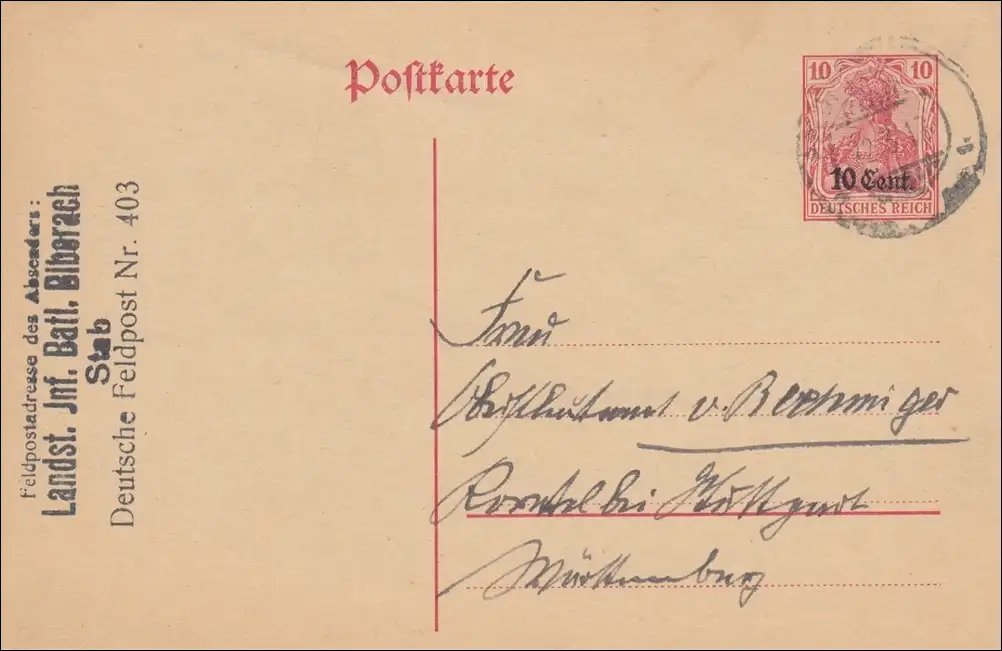 Postkarte
10 10
10 Cent.
DEUTSCHES REICH
Feldpostadresse des Absenders:
Landst. Inf. Batl. Biberach
Stab
Deutsche Feldpost Nr. 403
Frau
Oberstleutnant v.
Korntal bei Stuttgart
Württemberg